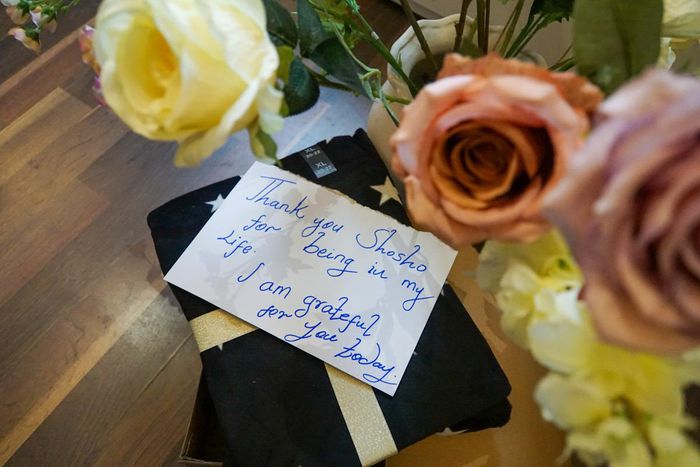 XL
20-22
XL
Thank you Shosho
for being in my
Life.
I am grateful
for you today.